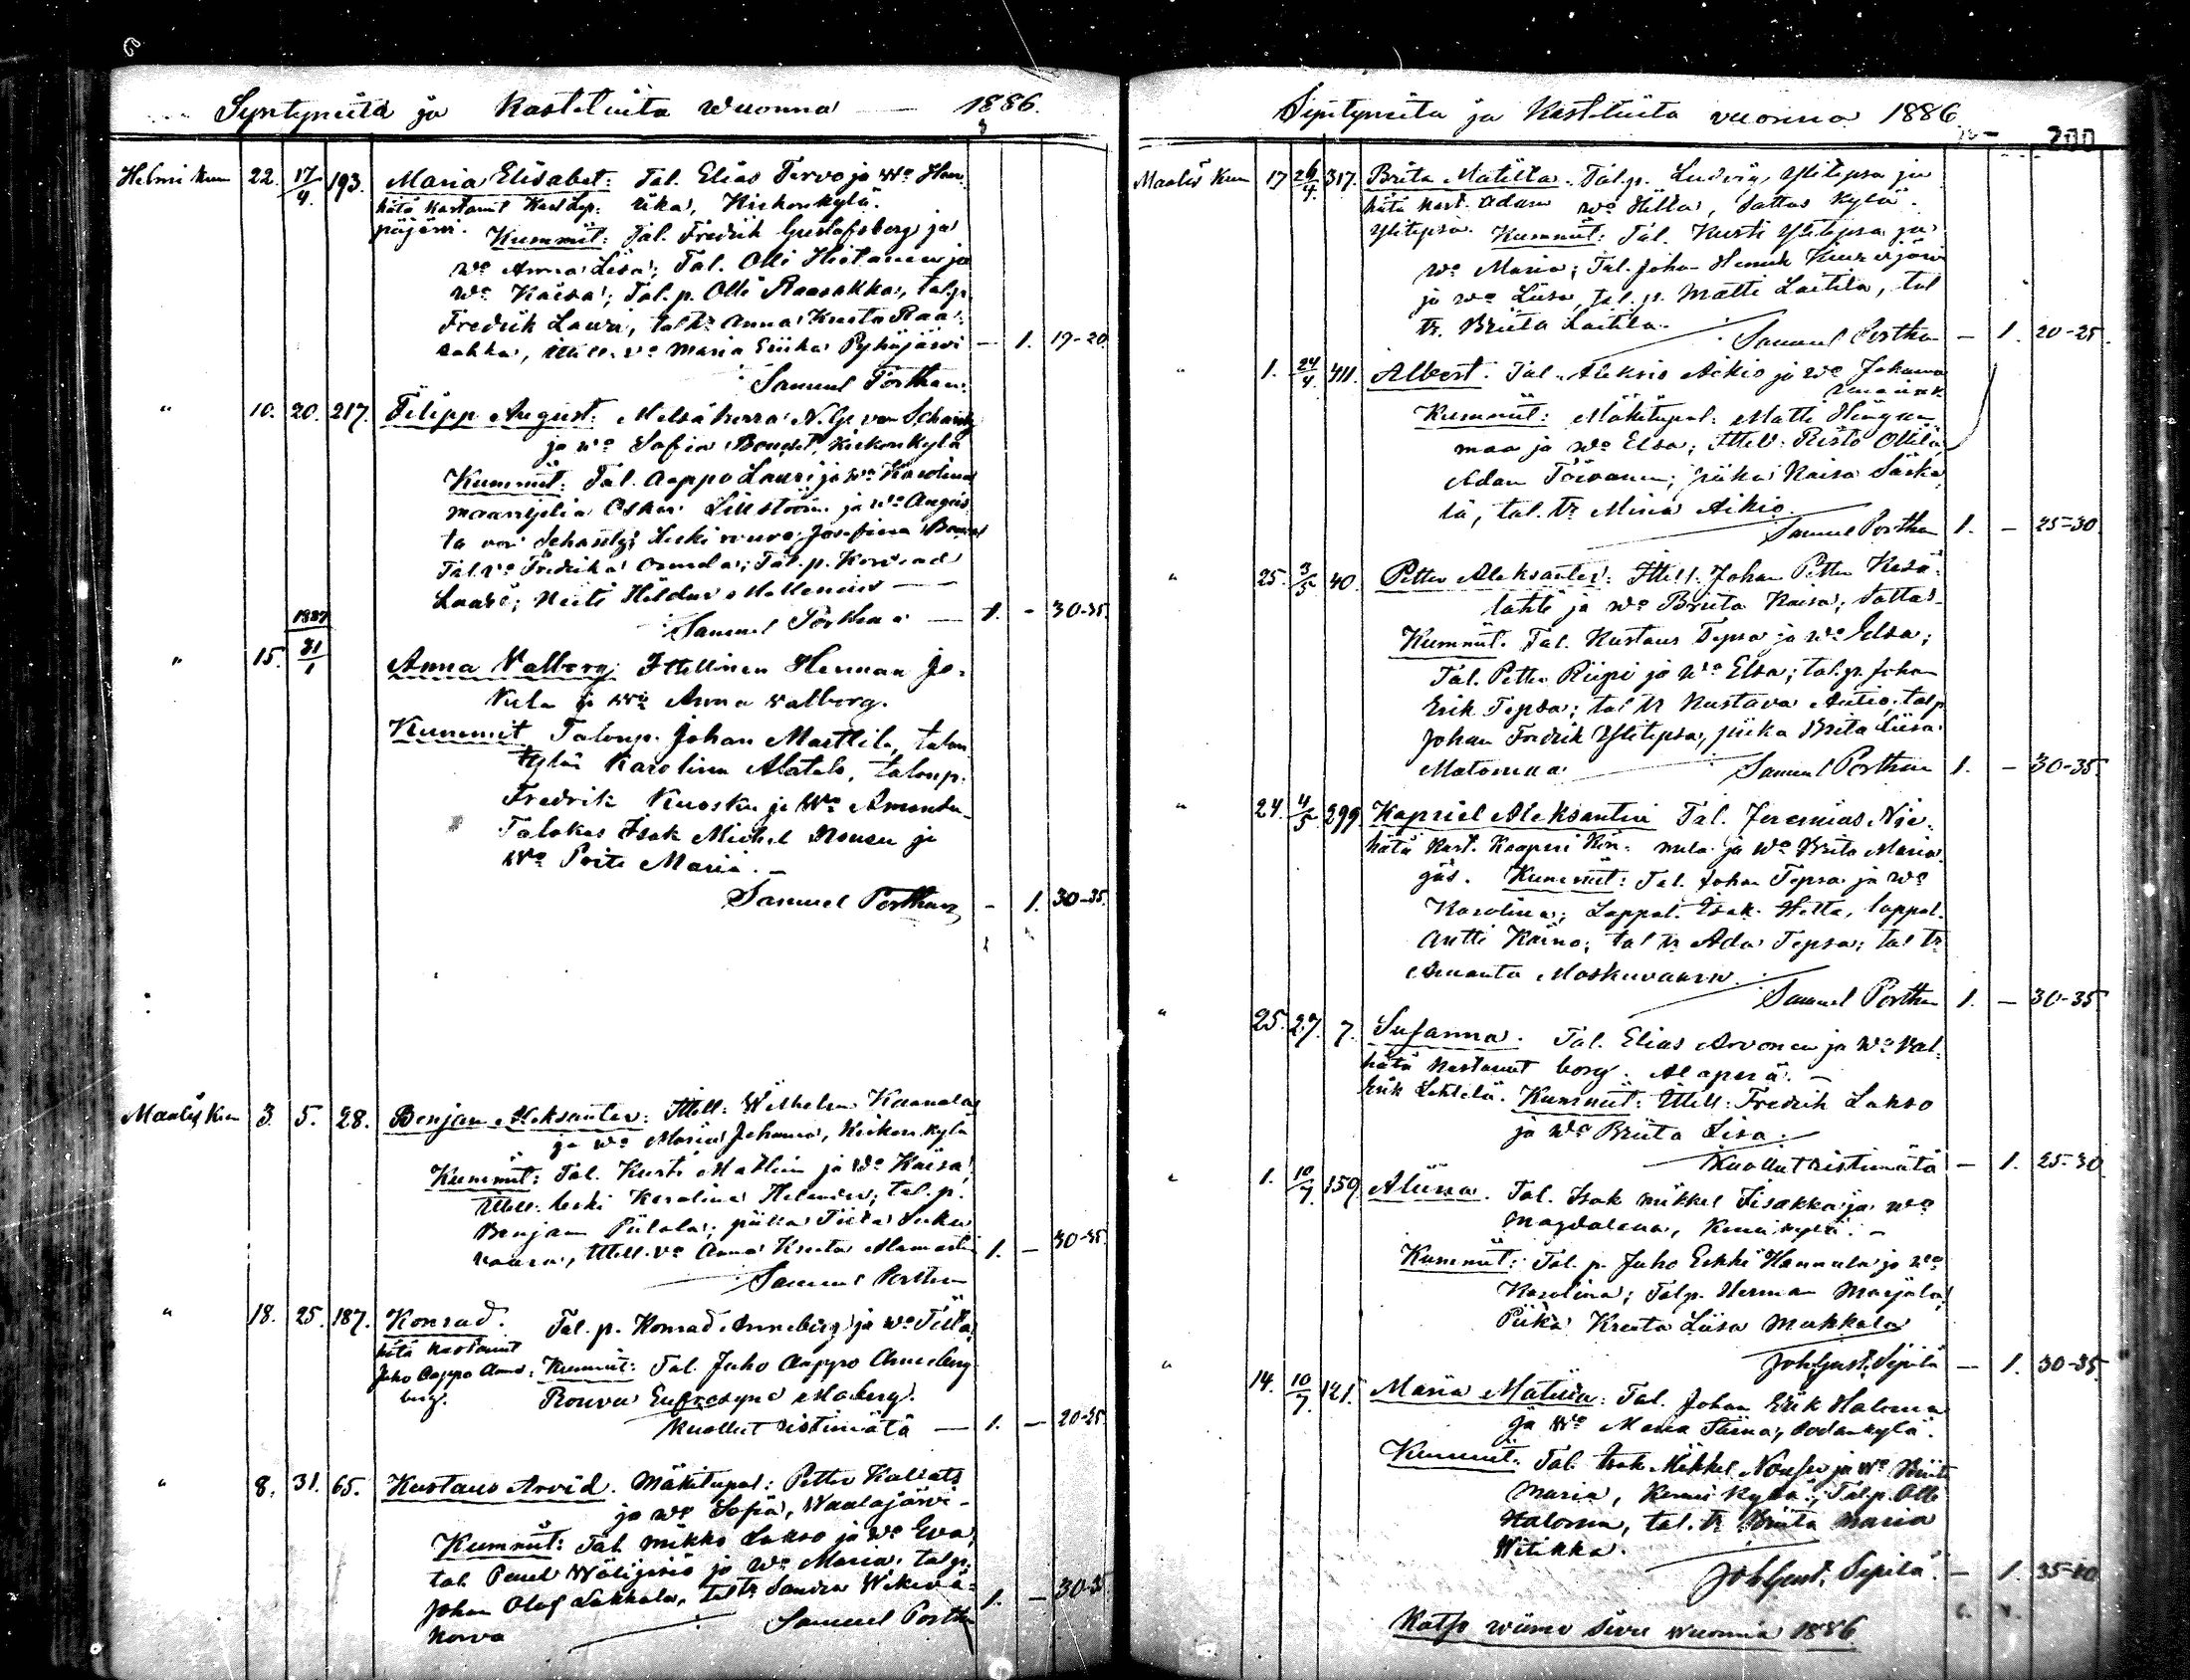 Syntyneitä ja Kastetuita wuonna — 1886.
Helmi kuu 22. 17/4. 193. Maria Elisabet: Tal. Elias Tervo ja Wo Hen-
hätä kastanut Karl Lep- rika, Kirkonkylä.
päjärvi. Kummit: Tal. Fredrik Gustafsberg ja
Wo Anna Lisa; Tal. Olli Hietanen ja
Wo Kaisa; Tal. p. Olli Raasakka, tal. p.
Fredrik Lauri, tal tr Anna Kreeta Raa-
sakka, Itell. Wo Maria Eriika Pyhäjärvi — 1. 19-20
Samuel Porthan.
" 10. 20. 217. Filipp August: Metsäherra N. G. von Schantz
ja Wo Sofia Bonsdt, Kirkonkylä
Kummit: Tal. Aappo Lauri ja Wo Karolina
maanviljeliä Oskar Lillström ja Wo Augus-
ta von Schantz; Leski rouva Josefina
Tal. Wo Fredrika Ormela; Tal. p. Konrad
Laari; Neiti Hildur Mellenius —
Samuel Porthan — 1. - 30-35.
" 15. 1887 31/1 Anna Walborg: Itellinen Herman Jo-
kela ja Wo Anna Walborg.
Kummit Talonp. Johan Marttila, talon
tytär Karolina Alatalo, talonp.
Fredrik Kuosku ja Wo Amanda
Talokas Isak Mickel Nousu ja
Wo Prita Maria. —
Samuel Porthan - 1. 30-35.
Maalis Kuu 3. 5. 28. Benjam Aleksanter: Itell: Wilhelm Kannala
ja Wo Maria Johanna, Kirkonkylä
Kummit: Tal. Kusti Martin ja Wo Kaisa;
Itell. leski Karolina Helander; tal. p.
Benjam Piilola; piika Tiila
vaara, Itell. Wo Anna Kreeta Alamartin 1. - 30-35.
Samuel Porthan
" 18. 25. 187. Konrad. Tal. p. Konrad Anneberg ja Wo Tilta
hätä kastanut
Juho Aappo Anne- Kummit: Tal. Juho Aappo Anneberg
berg. Rouva Eufrosyne Moberg.
Kuollut ristimätä — 1. — 20-25
" 8. 31. 65. Kustaus Arvid. Mäkitupal: Petter Kallats
ja Wo Sofia, Waalajärvi -
Kummit: Tal. Mikko Lakso ja Wo Eva;
tal. Paul Wäligisio ja Wo Maria. tal. p.
Johan Olof Lakkala, tal tr Sandra Wikeva- 1. — 30-35
korva Samuel Porthan
Syntyneitä ja Kastetuita vuonna 1886
200
Maalis Kuu 17 26/4. 317. Brita Matilta. Tal. p. Ludvig Ylitepsa ja
hätä kast. Adam Wo Hilta, Sattas kylä.
Ylitepsa. Kummit: Tal. Kusti Ylitepsa ja
Wo Maria; Tal. Johan Henrik Kiurujärvi
ja Wo Liisa, tal. p. Matti Laitila, tal
tr. Briita Laitila.
Samuel Porthan — 1. 20-25.
" 1. 24/4. 411. Albert. Tal. Aleksis Aikio ja Wo Johanna
Kummit: Mäkitupal. Matti Hingan-
maa ja Wo Elsa; Itell: Risto Ollila
Adam Toivanen; piika Kaisa Säska-
lä, tal. tr Miina Aikio.
Samuel Porthan 1. — 25-30
" 25. 3/5 40. Petter Aleksanter: Itell. Johan Petter Kesä-
lahti ja Wo Briita Kaisa; Sattas-
Kummit. Tal. Kustaus Tepsa ja Wo Elsa;
Tal. Petter Riipi ja Wo Elsa; tal. p. Johan
Erik Tepsa; tal tr Kustava Autio, tal p
Johan Fredrik Ylitepsa, piika Brita Liisa
Matomaa. Samuel Porthan 1. — 30-35.
" 24. 4/5. 299. Kapriel Aleksanteri Tal. Jeremias Nie-
hätä Kast. Kaaperi Kin- mela ja Wo Brita Maria
gäs. Kummit: Tal. Johan Tepsa ja Wo
Karolina; Lappal. Isak Hetta, lappal.
Antti Näino; tal tr Ada Tepsa; tal tr
Amanta Moskuvaara.
Samuel Porthan 1. — 30-35
" 25. 27. 7. Susanna. Tal. Elias Arvonen ja Wo Wal-
hätä kastanut borg. Alaperä. —
Erik Lehtelä. Kummit: Itell: Fredrik Lakso
ja Wo Briita Lisa.
Kuollut ristimätä — 1. 25-30
" 1. 10/7. 159. Aliina. Tal. Isak Mikkel Iisakka ja Wo
Magdalena, Kemi kylä. —
Kummit: Tal. p. Juho Erkki Hannula ja Wo
Karolina; Tal p. Herman Marjala;
Piika Kreeta Liisa Mukkala
Joh Gust. Sipilä — 1. 30-35
" 14. 10/7. 121. Maria Matilda: Tal. Johan Erik Halonen
ja Wo Maria Stiina, Sodankylä.
Kummit: Tal. Isak Mikkel Nousu ja Wo Briita
Maria, Kemi kylä; Tal p. Olli
Halonen, tal. tr Briita Maria
Witikka.
Joh Gust. Sipilä. — 1. 35-40
Katso wiime sivu wuonna 1886